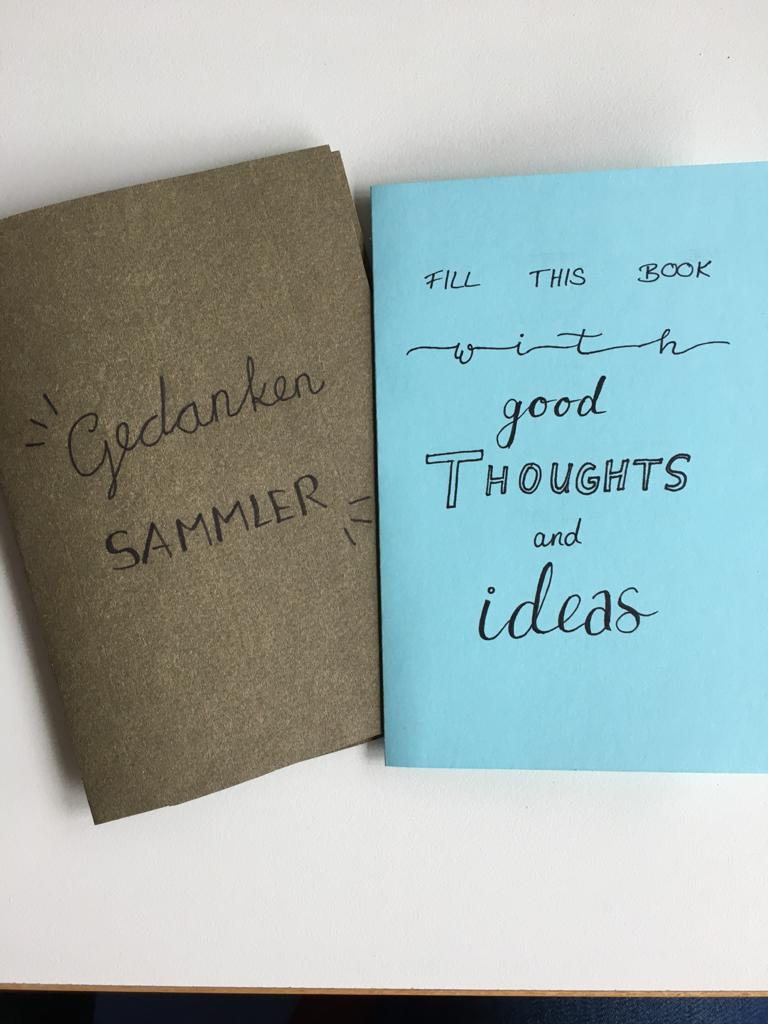 Gedanken
SAMMLER
FILL THIS BOOK
with
good
THOUGHTS
and
ideas